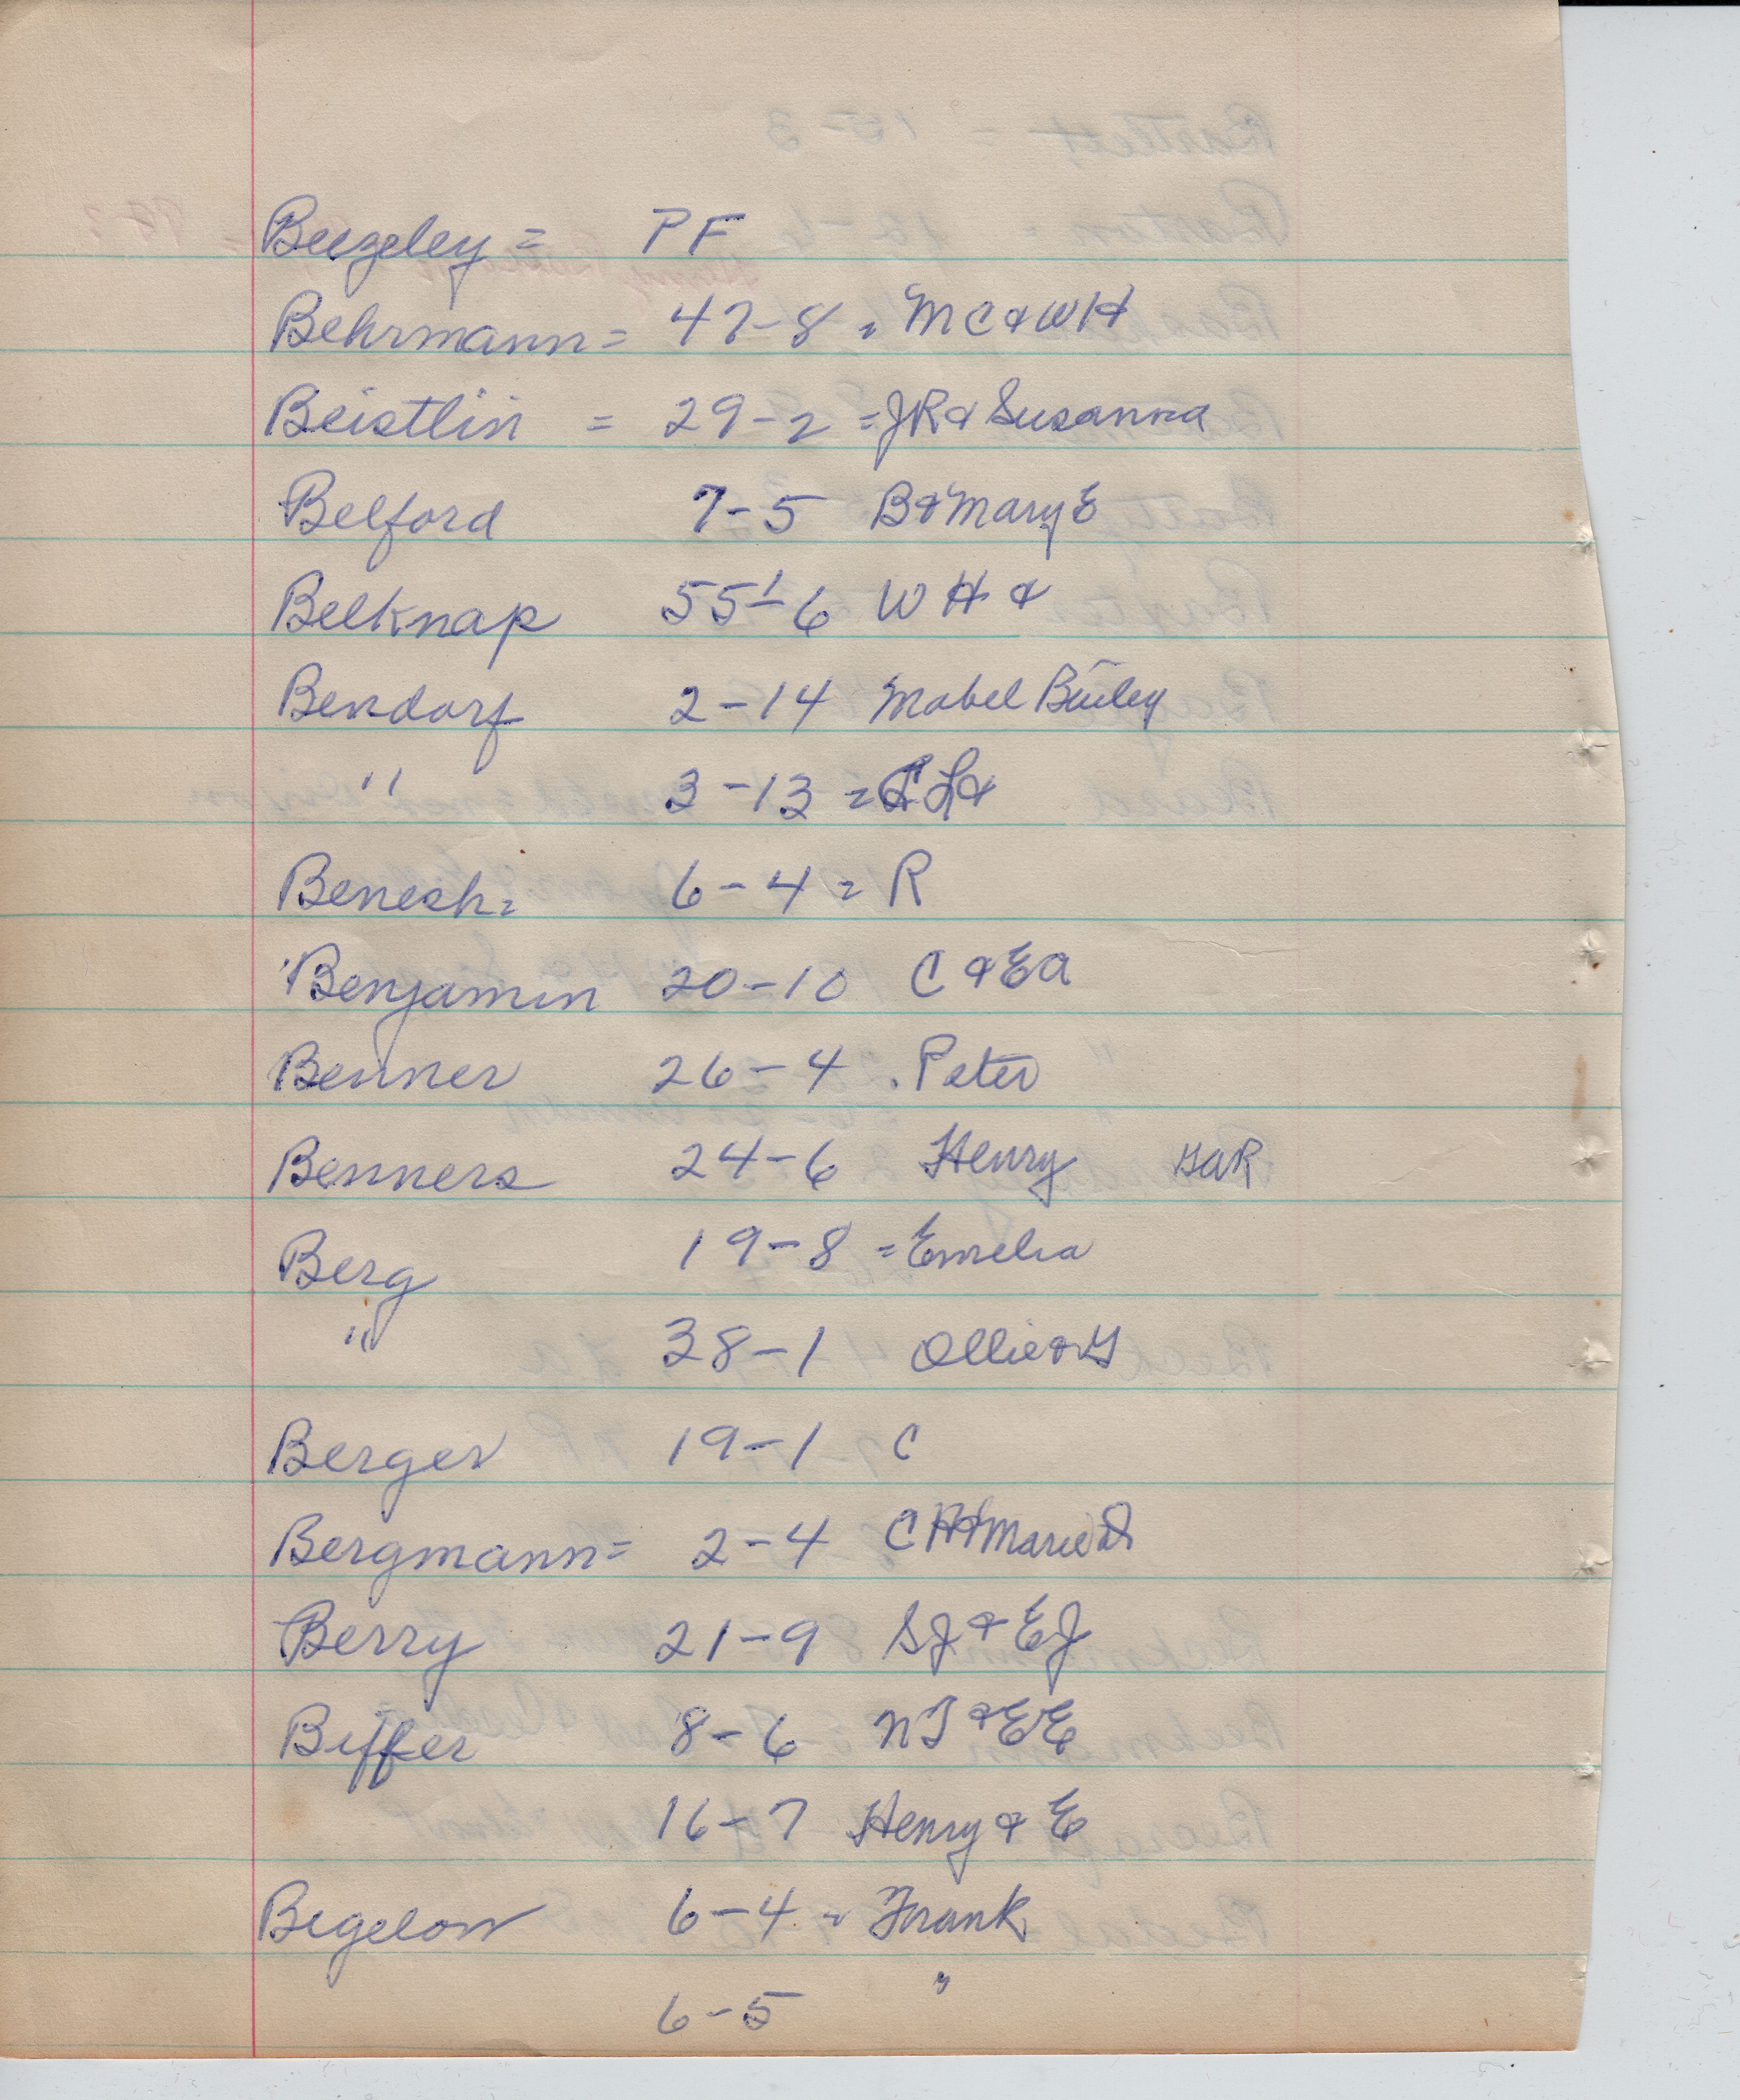 Beezeley = PF
Behrmann = 47-8 = MC & WH
Beistlin = 29-2 = JR & Susanna
Belford 7-5 B & Mary E
Belknap 55-6 WH &
Bendorf 2-14 Mabel Bailey
" 3-13 = L &
Benesh = 6-4 = R
Benjamin 20-10 C & EA
Benner 26-4 . Peter
Benners 24-6 Henry GAR
Berg 19-8 = Emelia
" 38-1 Ollie & G
Berger 19-1 C
Bergmann = 2-4 CH & Marie
Berry 21-9 SJ & EJ
Biffer 8-6 NT & EE
16-7 Henry & E
Bigelow 6-4 = Frank
6-5 "